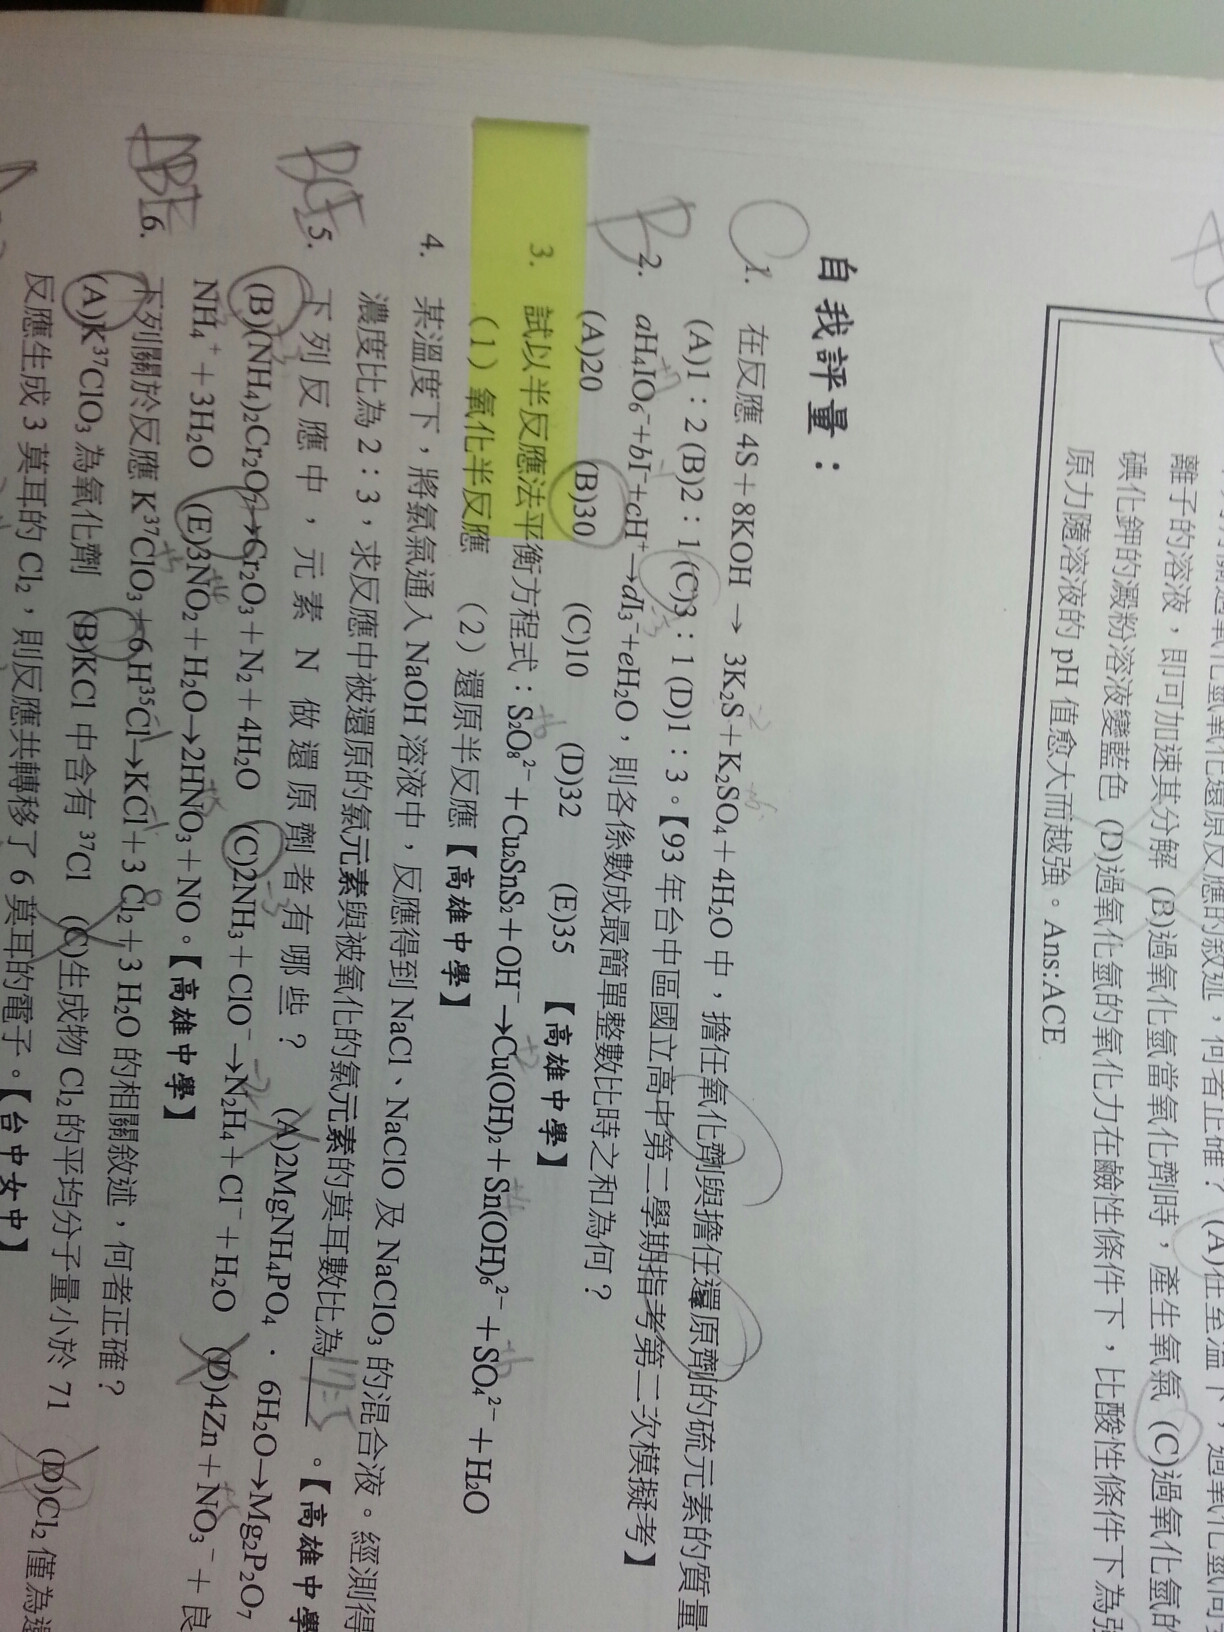 離子的溶液，即可加速其分解 (B)過氧化氫當氧化劑時，產生氧氣 (C)過氧化氫的
碘化鉀的澱粉溶液變藍色 (D)過氧化氫的氧化力在鹼性條件下，比酸性條件下為強
原力隨溶液的 pH 值愈大而越強。Ans:ACE
自我評量：
1. 在反應 4S＋8KOH → 3K₂S＋K₂SO₄＋4H₂O 中，擔任氧化劑與擔任還原劑的硫元素的質量
(A)1：2 (B)2：1 (C)3：1 (D)1：3。【93 年台中區國立高中第二學期指考第二次模擬考】
B 2. aH₄IO₆⁻+bI⁻+cH⁺→dI₃⁻+eH₂O，則各係數成最簡單整數比時之和為何？
(A)20 (B)30 (C)10 (D)32 (E)35 【高雄中學】
3. 試以半反應法平衡方程式：S₂O₈²⁻＋Cu₂SnS₂＋OH⁻→Cu(OH)₂＋Sn(OH)₆²⁻＋SO₄²⁻＋H₂O
（1）氧化半反應 （2）還原半反應【高雄中學】
4. 某溫度下，將氯氣通入 NaOH 溶液中，反應得到 NaCl、NaClO 及 NaClO₃ 的混合液。經測得
濃度比為 2：3，求反應中被還原的氯元素與被氧化的氯元素的莫耳數比為 。【高雄中學
BCE 5. 下列反應中，元素 N 做還原劑者有哪些？ (A)2MgNH₄PO₄．6H₂O→Mg₂P₂O₇
(B)(NH₄)₂Cr₂O₇→Cr₂O₃＋N₂＋4H₂O (C)2NH₃＋ClO⁻→N₂H₄＋Cl⁻＋H₂O (D)4Zn＋NO₃⁻＋
NH₄⁺＋3H₂O (E)3NO₂＋H₂O→2HNO₃＋NO。【高雄中學】
6. 下列關於反應 K³⁷ClO₃＋6 H³⁵Cl→KCl＋3 Cl₂＋3 H₂O 的相關敘述，何者正確？
(A)K³⁷ClO₃ 為氧化劑 (B)KCl 中含有 ³⁷Cl (C)生成物 Cl₂ 的平均分子量小於 71 (D)Cl₂ 僅為
反應生成 3 莫耳的 Cl₂，則反應共轉移了 6 莫耳的電子。【台中女中】